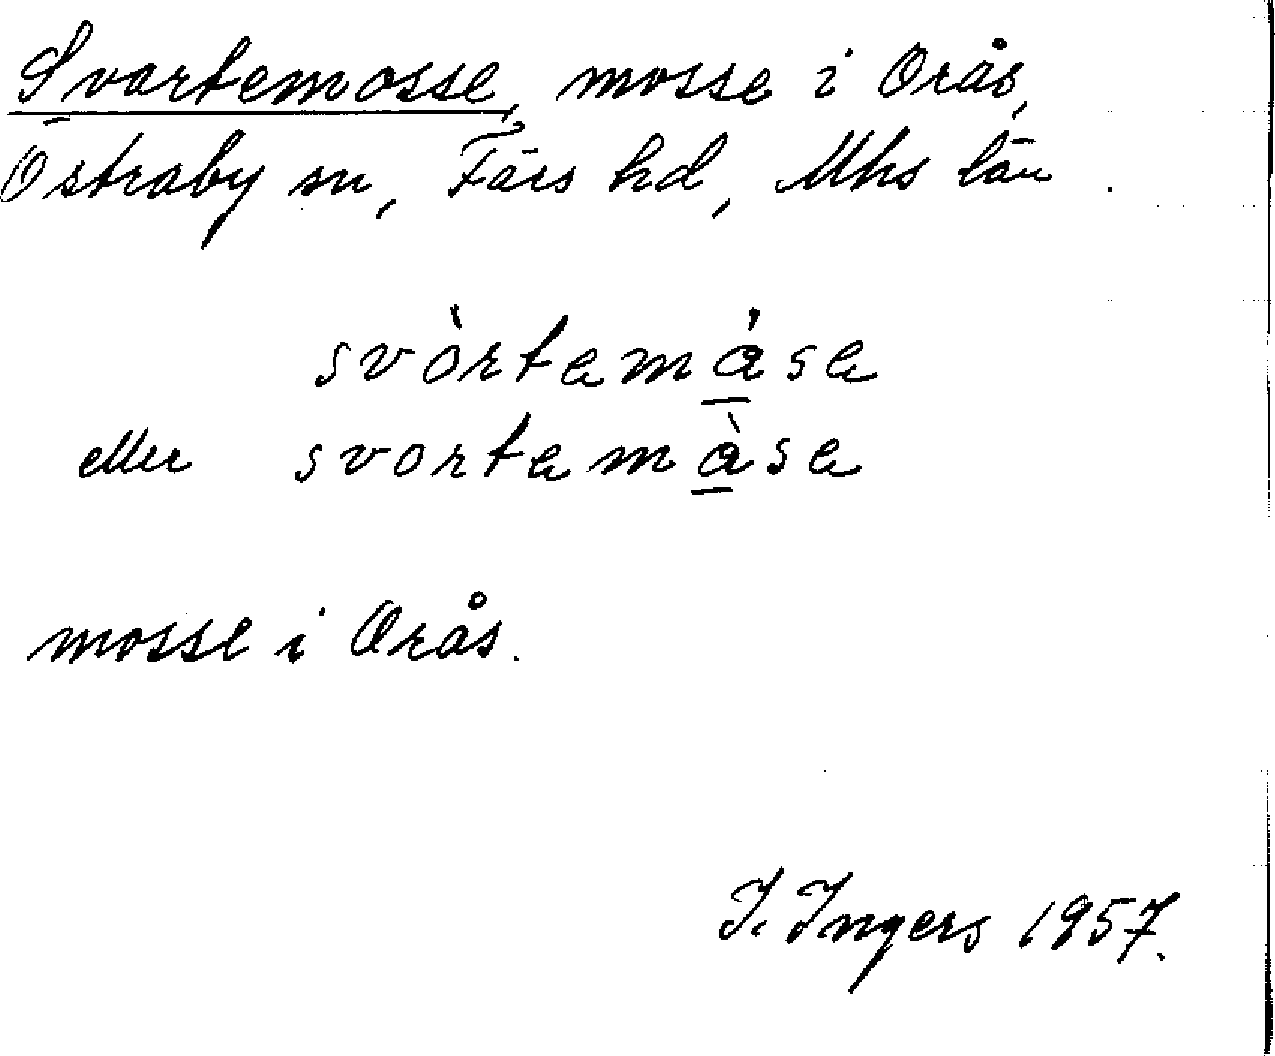 Svartemosse, mosse i Orås,
Östraby sn, Färs hd, Mhs län.
svòrtemáse
eller svortemàse
mosse i Orås.
I. Ingers 1957.